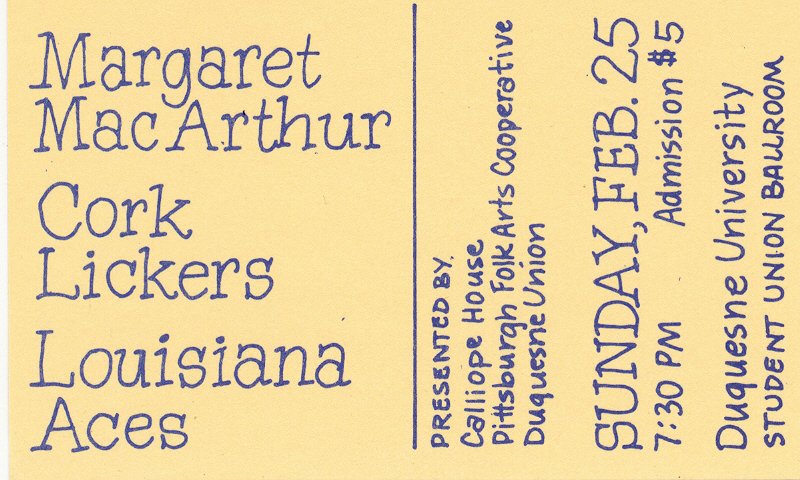 Margaret
MacArthur
Cork
Lickers
Louisiana
Aces
PRESENTED BY
Calliope House
Pittsburgh Folk Arts Cooperative
Duquesne Union
SUNDAY, FEB. 25
7:30 PM Admission $5
Duquesne University
STUDENT UNION BALLROOM